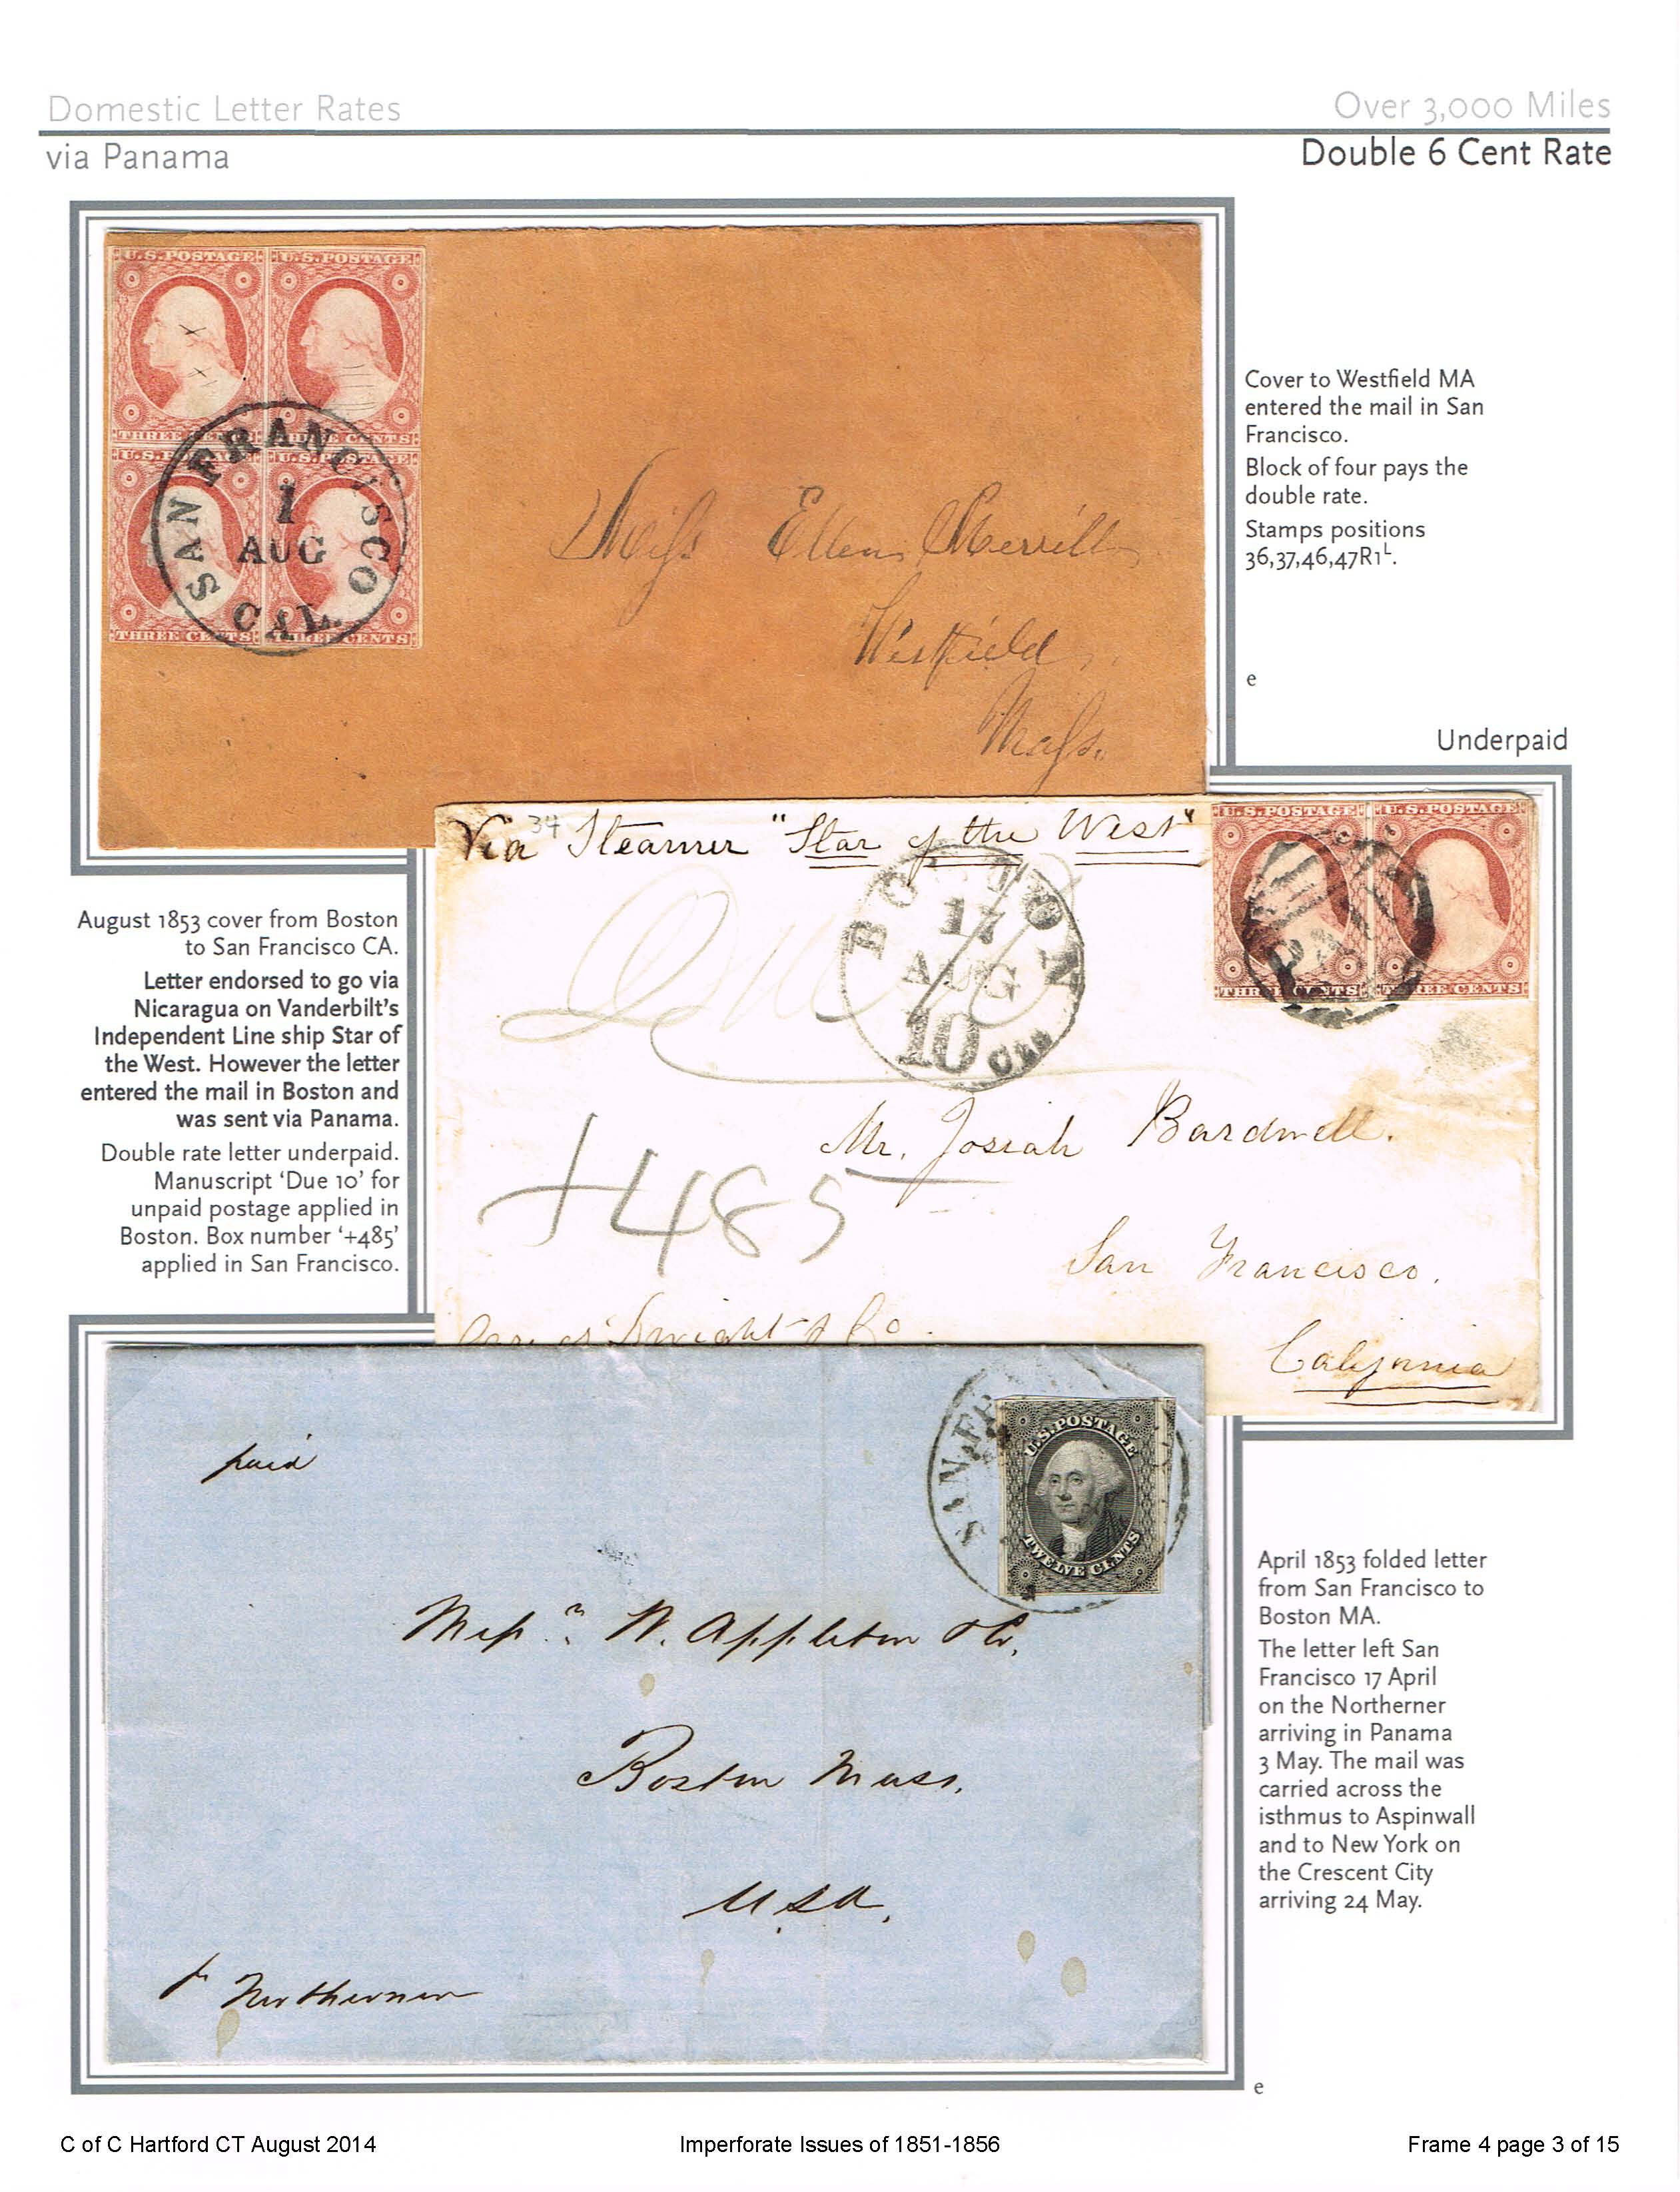 Domestic Letter Rates
Over 3,000 Miles
via Panama
Double 6 Cent Rate
U.S. POSTAGE
U.S. POSTAGE
THREE CENTS
THREE CENTS
U.S. POSTAGE
U.S. POSTAGE
THREE CENTS
THREE CENTS
SAN FRANCISCO
1
AUG
CAL.
Miss Ellen Merrill
Westfield
Mass.
Cover to Westfield MA
entered the mail in San
Francisco.
Block of four pays the
double rate.
Stamps positions
36,37,46,47R1L.
e
Underpaid
Via Steamer "Star of the West"
34
U.S. POSTAGE
U.S. POSTAGE
THREE CENTS
THREE CENTS
BOSTON
17
AUG
10 Cts
Due
Mr. Josiah Bardwell.
+485
San Francisco.
California
Care of Dwight & Co.
August 1853 cover from Boston
to San Francisco CA.
Letter endorsed to go via
Nicaragua on Vanderbilt's
Independent Line ship Star of
the West. However the letter
entered the mail in Boston and
was sent via Panama.
Double rate letter underpaid.
Manuscript 'Due 10' for
unpaid postage applied in
Boston. Box number '+485'
applied in San Francisco.
paid
SAN FR
U.S. POSTAGE
TWELVE CENTS
Messrs. W. Appleton & Co.
Boston Mass.
U.S.A.
pr Northerner
April 1853 folded letter
from San Francisco to
Boston MA.
The letter left San
Francisco 17 April
on the Northerner
arriving in Panama
3 May. The mail was
carried across the
isthmus to Aspinwall
and to New York on
the Crescent City
arriving 24 May.
e
C of C Hartford CT August 2014
Imperforate Issues of 1851-1856
Frame 4 page 3 of 15